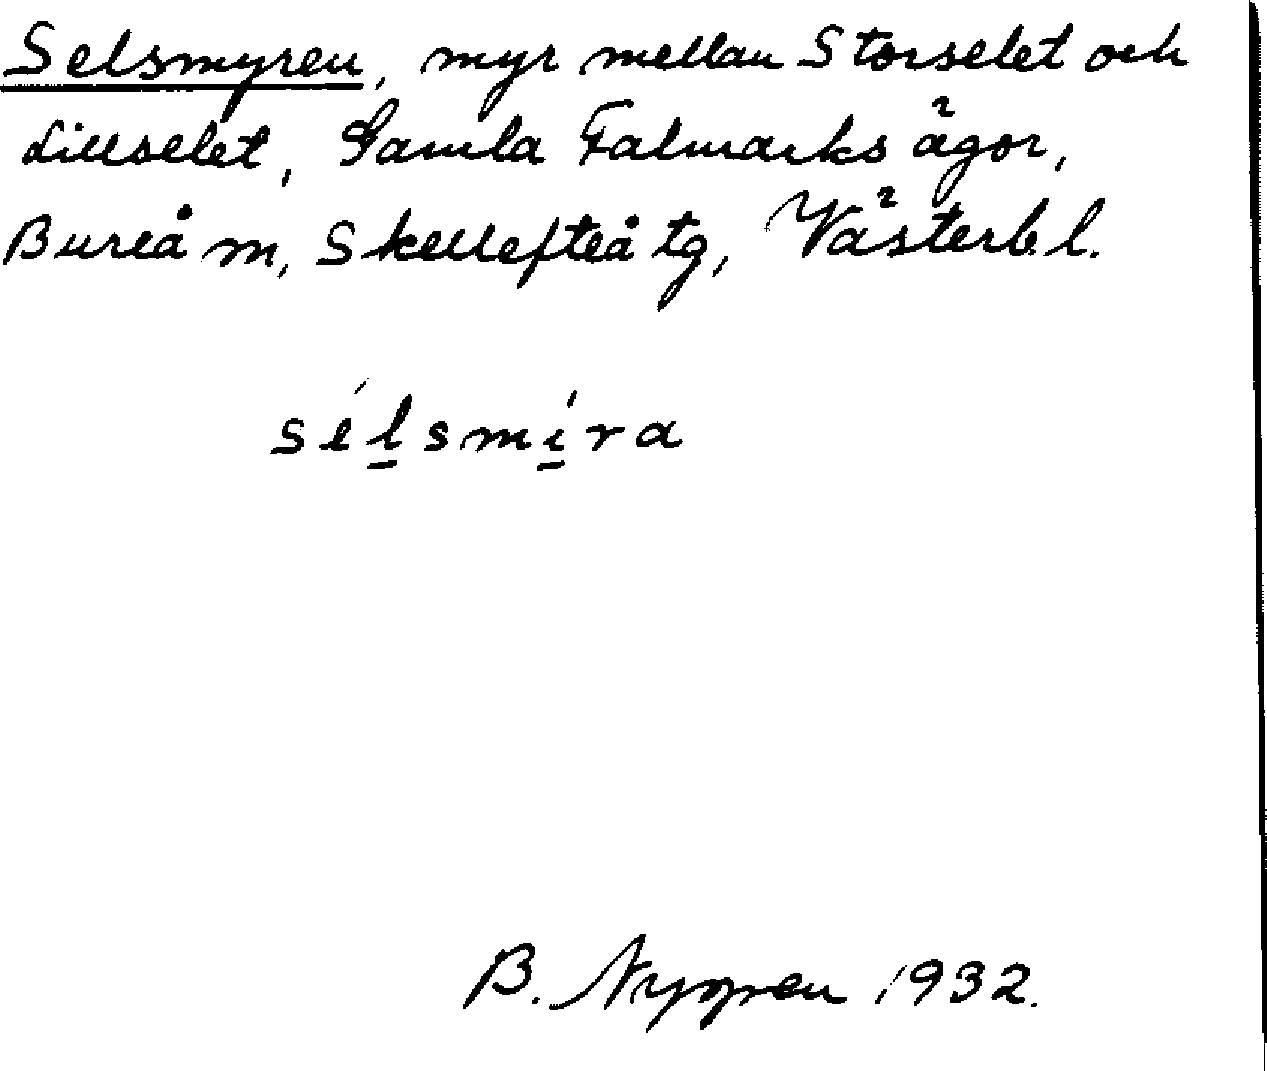 Selsmyren, myr mellan Storselet och
Lillselet, Gamla Falmarks ägor,
Bureå m, Skellefteå tg, Västerb. l.
sélsmíra
B. Nygren 1932.